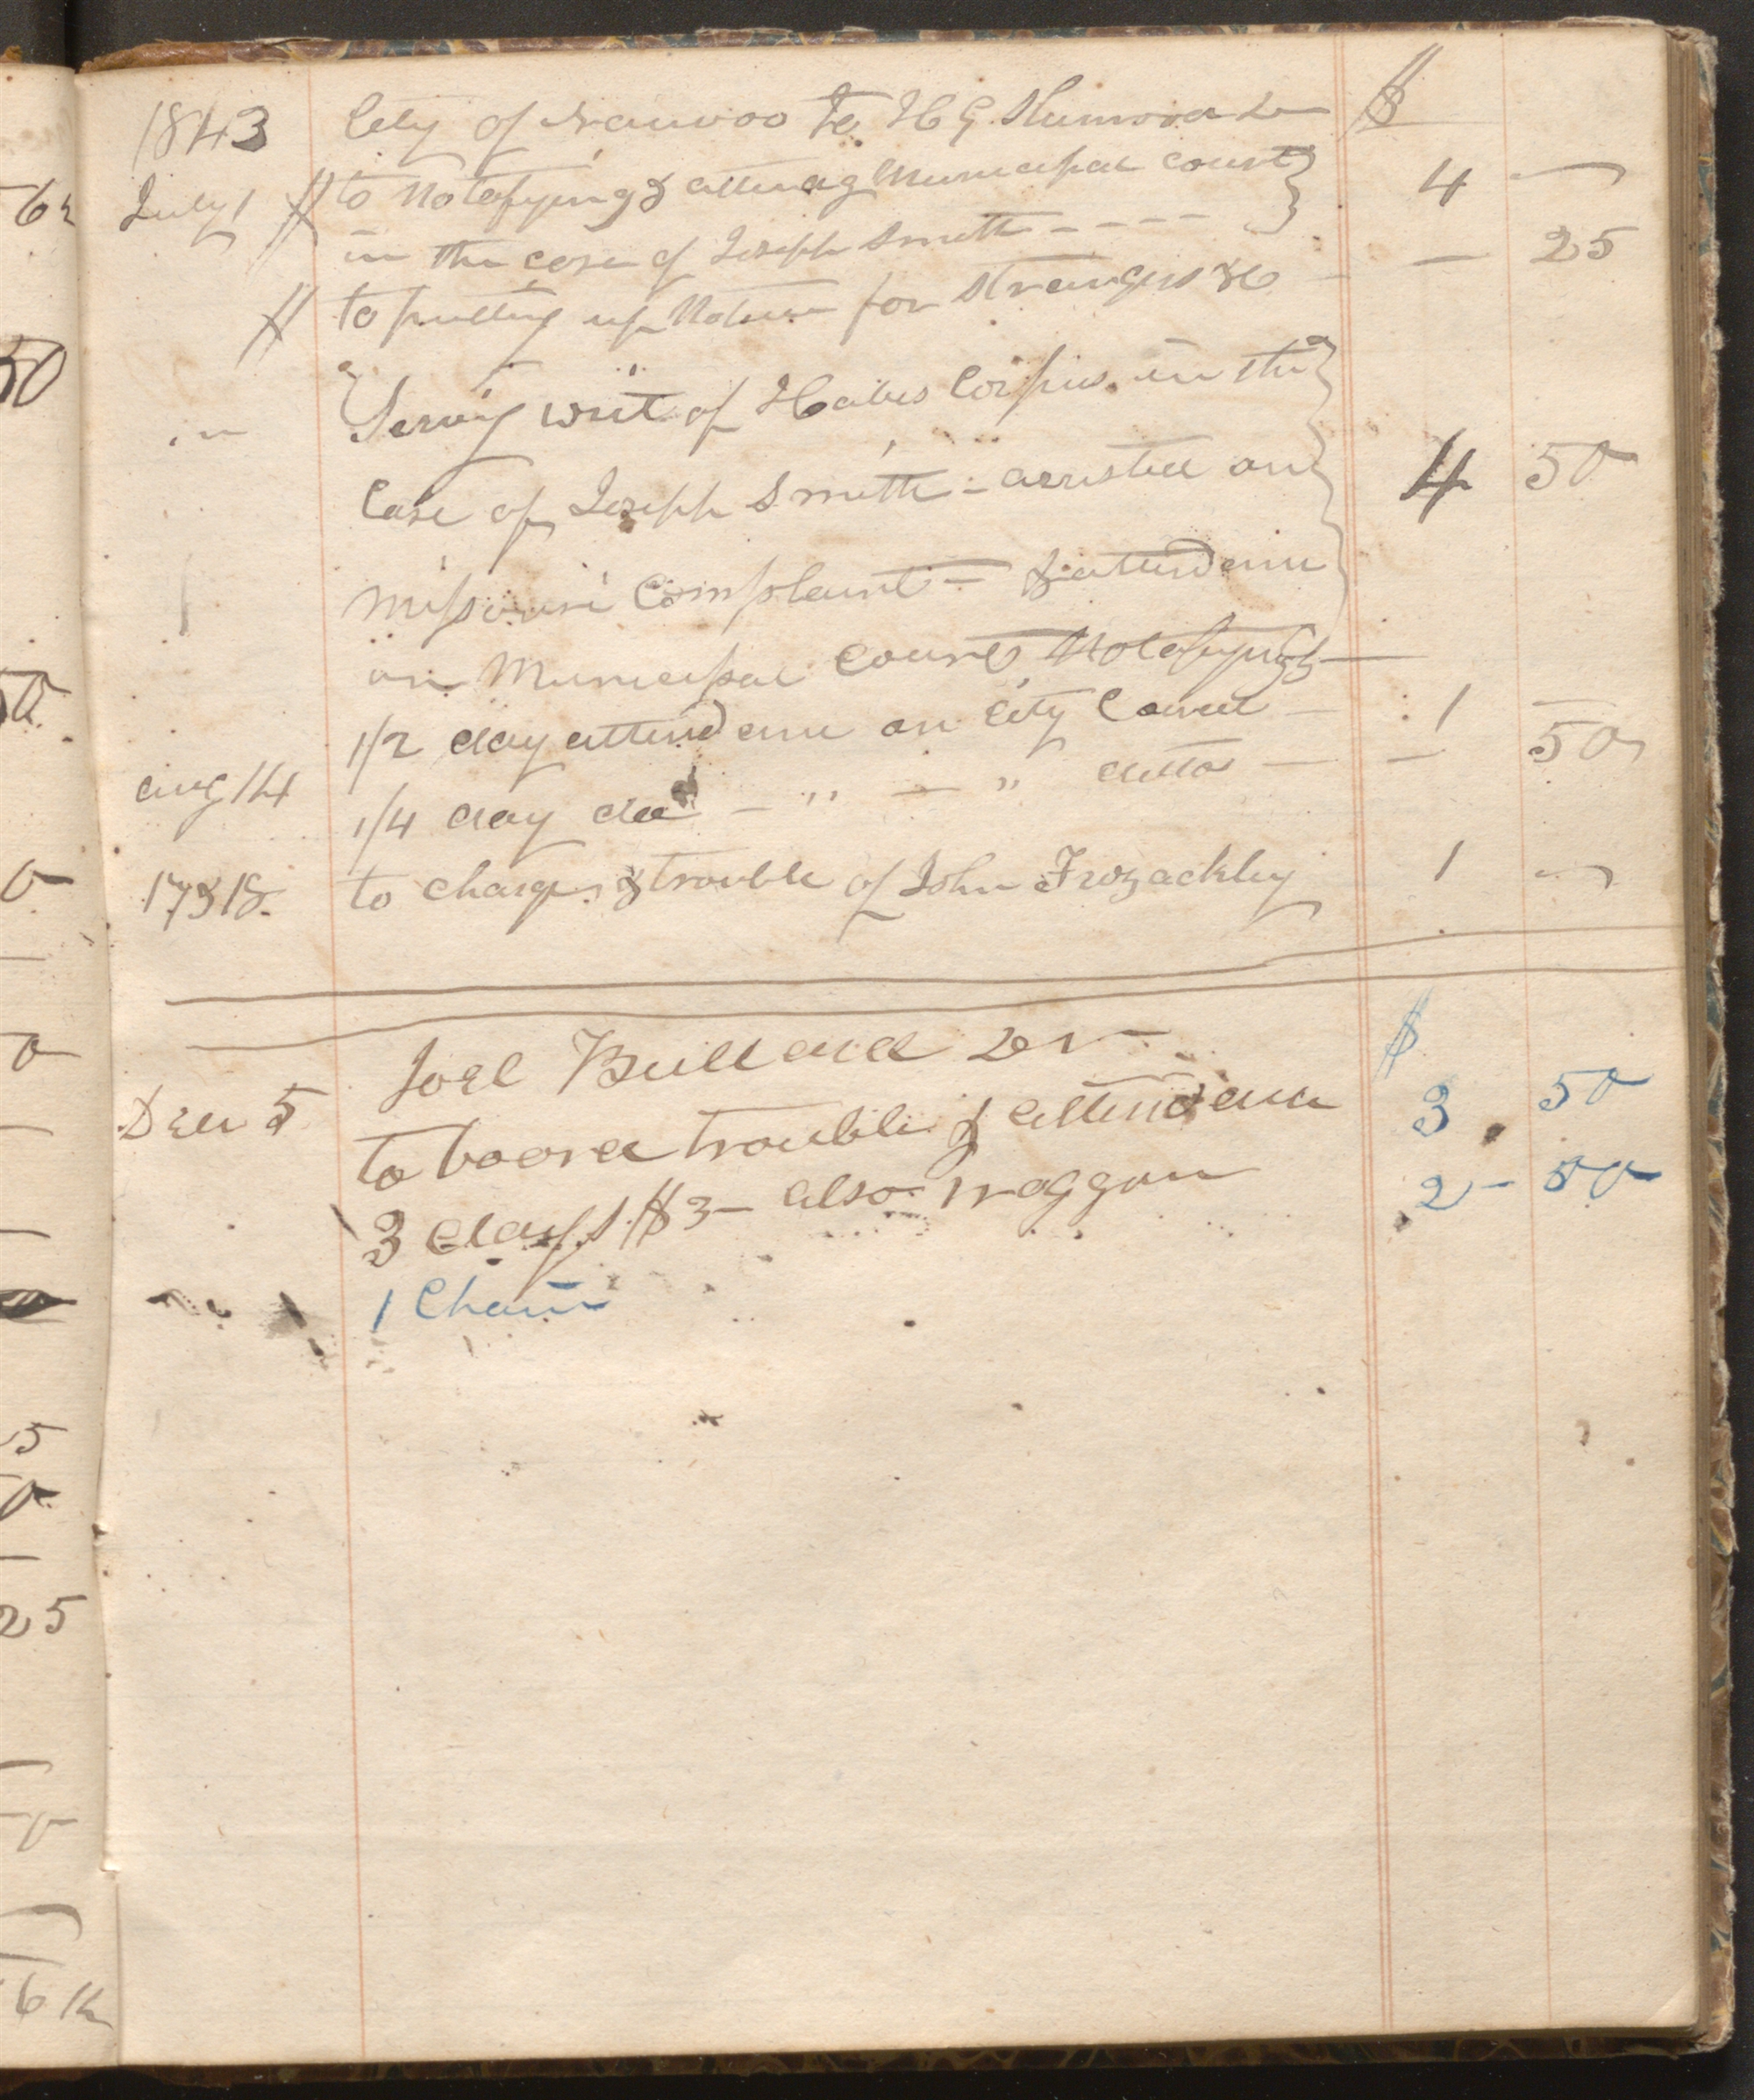 1843 City of Nauvoo to H G. Sherwood Dr $
July 1 to Notefying & attendg Municipal court 4 —
in the case of Joseph Smith - - - -
to putting up Notices for strangers &c - — 25
Serving writ of Habes Corpus in the
Case of Joseph Smith - arrested on 4 50
Missouri Complaint - & attendance
on Municipal Court, Notefying &c
1/2 day attendance on City Council - 1 —
aug 14 1/4 day do — " — " ditto — — 50
17 & 18. to charge & trouble of John Frozackley 1 —
Joel Bullard Dr — $
Dec 5 to board trouble & attendance 3 50
3 days $3 — also waggon 2 - 50
1 Chain
62
50
50
0
0
5
0
25
0
6 1/2